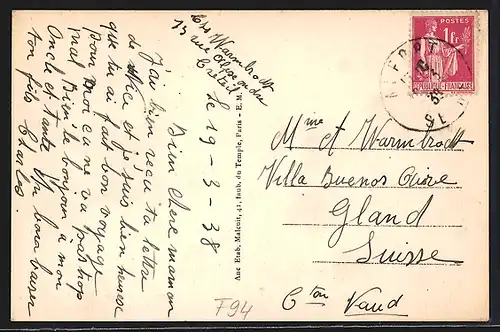 Chs Warmbrodt
13 rue
Créteil
le 19-3-38
Bien chere maman
J'ai bien reçu ta lettre
de et je suis bien heureux
que tu ai fait bon voyage
pour moi ça ne va pas trop
mal Bien le bonjour à mon
Oncle et tante Bon baiser
ton fils Charles
Anc Etab. Malcuit, 41, faub. du Temple, Paris - E. M.
POSTES
1 Fr
RÉPUBLIQUE FRANÇAISE
Mme A Warmbrodt
Villa Buenos
Gland
Suisse
Cton Vaud
F94